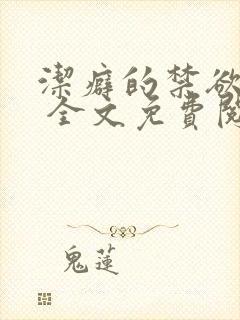 潔癖的禁欲
全文免費閱
鬼蓮